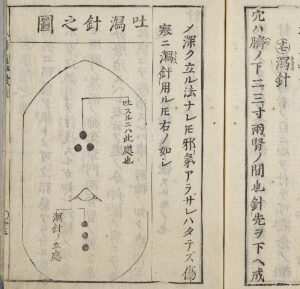 瀉針
穴ハ臍ノ下二三寸兩腎ノ間也針先ヲ下ヘ成
メ深ク立ル法ナレ𪜈邪氣アラサレハタテズ傷
寒ニ瀉針用ル𪜈右ノ如シ
吐瀉針之圖
吐スルニハ此處也
瀉針ノ立處